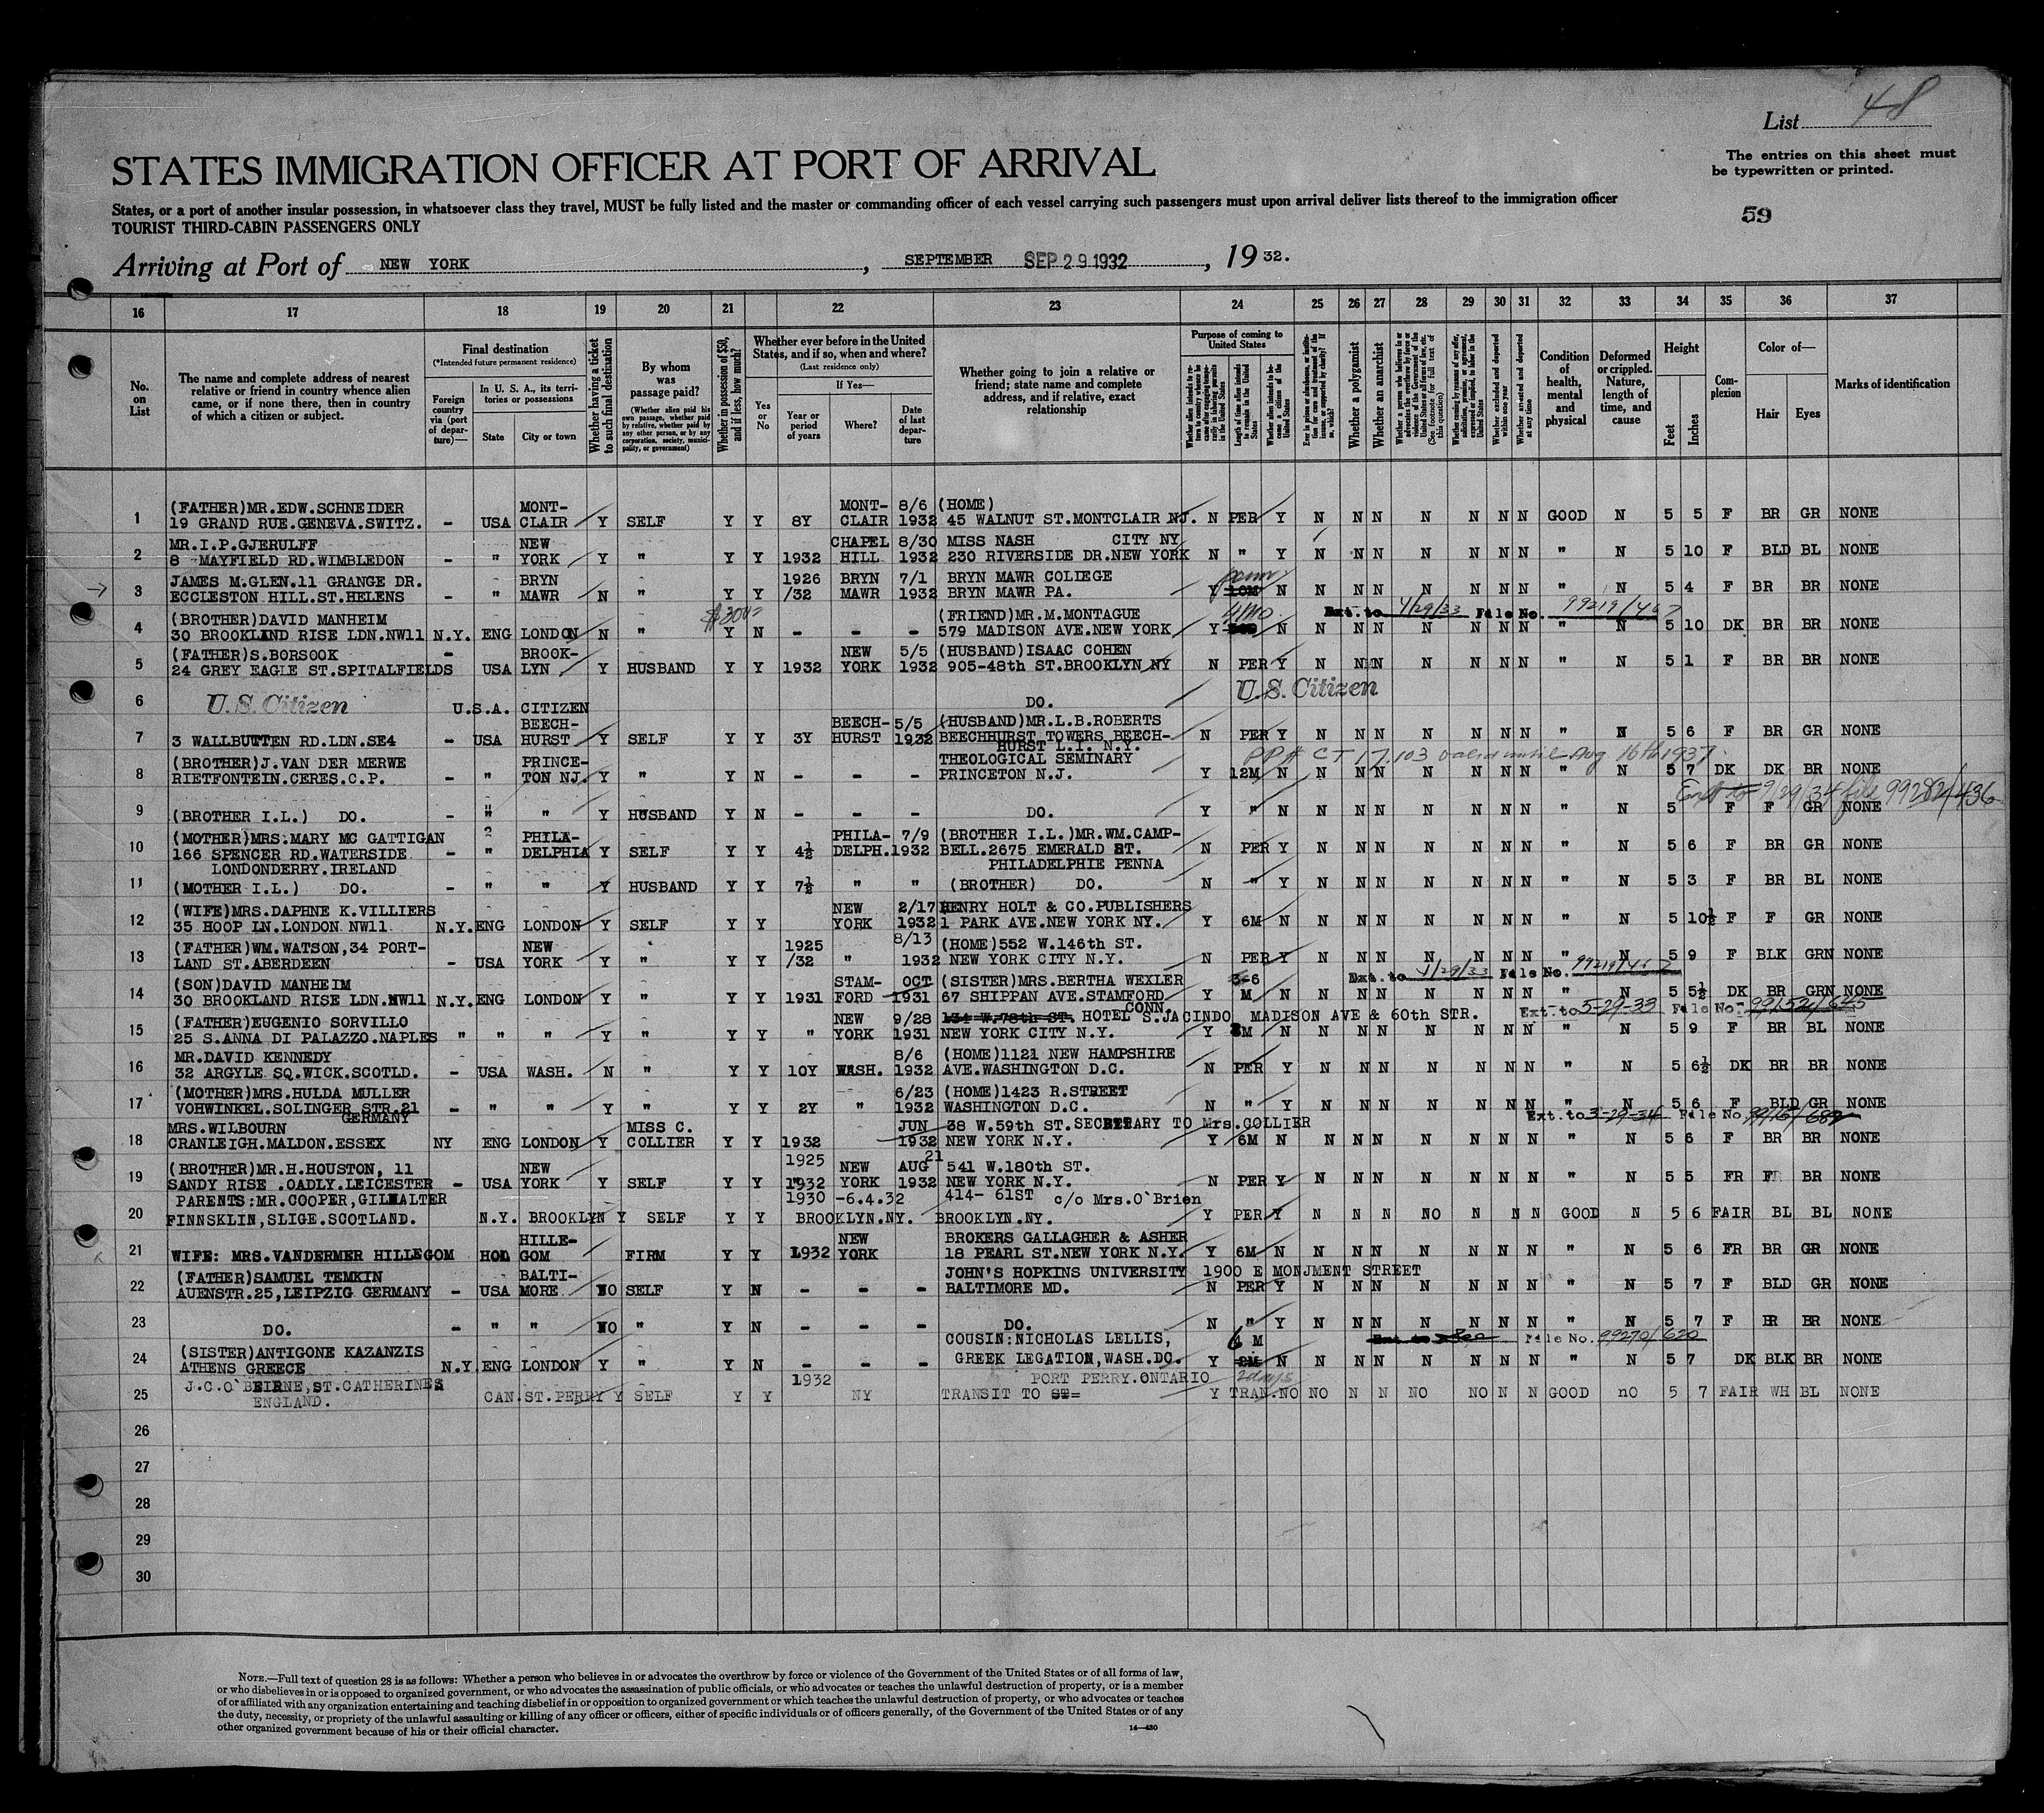 List 48
STATES IMMIGRATION OFFICER AT PORT OF ARRIVAL
The entries on this sheet must
be typewritten or printed.
States, or a port of another insular possession, in whatsoever class they travel, MUST be fully listed and the master or commanding officer of each vessel carrying such passengers must upon arrival deliver lists thereof to the immigration officer
TOURIST THIRD-CABIN PASSENGERS ONLY
59
Arriving at Port of NEW YORK, SEPTEMBER SEP 29 1932, 1932.
16 17 18 19 20 21 22 23 24 25 26 27 28 29 30 31 32 33 34 35 36 37
No. on List
The name and complete address of nearest relative or friend in country whence alien came, or if none there, then in country of which a citizen or subject.
Final destination
(*Intended future permanent residence)
Foreign country via (port of departure)—
In U. S. A., its territories or possessions
State
City or town
Whether having a ticket to such final destination
By whom was passage paid?
(Whether alien paid his own passage, whether paid by relative, whether paid by any other person, or by any corporation, society, municipality, or government)
Whether in possession of $50, and if less, how much?
Whether ever before in the United States, and if so, when and where?
(Last residence only)
Yes or No
If Yes—
Year or period of years
Where?
Date of last departure
Whether going to join a relative or friend; state name and complete address, and if relative, exact relationship
Purpose of coming to United States
Length of time alien intends to remain in the United States
Whether alien intends to become a citizen of the United States
Whether a polygamist
Whether an anarchist
Whether excluded and deported within one year
Whether arrested and deported at any time
Condition of health, mental and physical
Deformed or crippled. Nature, length of time, and cause
Height
Feet
Inches
Complexion
Color of—
Hair
Eyes
Marks of identification
1 (FATHER)MR.EDW.SCHNEIDER MONT- MONT- 8/6 (HOME)
19 GRAND RUE.GENEVA.SWITZ. - USA CLAIR Y SELF Y Y 8Y CLAIR 1932 45 WALNUT ST.MONTCLAIR NJ. N PER Y N N N N N N N GOOD N 5 5 F BR GR NONE
2 MR.I.P.GJERULFF NEW CHAPEL 8/30 MISS NASH CITY NY
8 MAYFIELD RD.WIMBLEDON - " YORK Y " Y Y 1932 HILL 1932 230 RIVERSIDE DR.NEW YORK N " Y N N N N N N N " N 5 10 F BLD BL NONE
3 JAMES M.GLEN.11 GRANGE DR. BRYN 1926 BRYN 7/1 BRYN MAWR COLlEGE
ECCLESTON HILL.ST.HELENS - " MAWR N " Y Y /32 MAWR 1932 BRYN MAWR PA. Y 10M N N N N N N N N " N 5 4 F BR BR NONE
4 (BROTHER)DAVID MANHEIM $300 (FRIEND)MR.M.MONTAGUE 4MO Ext. to 4/29/33 File No. 99219/457
30 BROOKLAND RISE LDN.NW11 N.Y. ENG LONDON N " Y N - - - 579 MADISON AVE.NEW YORK Y N N N N N N N N " N 5 10 DK BR BR NONE
5 (FATHER)S.BORSOOK - BROOK- NEW 5/5 (HUSBAND)ISAAC COHEN
24 GREY EAGLE ST.SPITALFIELDS USA LYN Y HUSBAND Y Y 1932 YORK 1932 905-48th ST.BROOKLYN NY N PER Y N N N N N N N " N 5 1 F BR BR NONE
6 U.S. Citizen U.S.A. CITIZEN DO. U.S. Citizen
7 BEECH- BEECH- 5/5 (HUSBAND)MR.L.B.ROBERTS
3 WALLBUTTEN RD.LDN.SE4 - USA HURST Y SELF Y Y 3Y HURST 1932 BEECHHURST TOWERS BEECH- N PER Y N N N N N N N " N 5 6 F BR GR NONE
HURST L.I. N.Y.
8 (BROTHER)J.VAN DER MERWE PRINCE- THEOLOGICAL SEMINARY PP# CT 17.103 valid until Aug 16th 1937
RIETFONTEIN.CERES.C.P. - " TON NJ. Y " Y N - - - PRINCETON N.J. Y 12M N N N N N N N N " N 5 7 DK DK BR NONE
Ext to 9/29/34 file 99282/436
9 (BROTHER I.L.) DO. - " " Y HUSBAND Y N - - - DO. Y " N N N N N N N N " N 5 F F GR NONE
10 (MOTHER)MRS.MARY MC GATTIGAN PHILA- PHILA- 7/9 (BROTHER I.L.)MR.WM.CAMP-
166 SPENCER RD.WATERSIDE - " DELPHIA Y SELF Y Y 4½ DELPH. 1932 BELL.2675 EMERALD ST. N PER Y N N N N N N N " N 5 6 F BR GR NONE
LONDONDERRY.IRELAND PHILADELPHIE PENNA
11 (MOTHER I.L.) DO. - " " Y HUSBAND Y Y 7½ " " (BROTHER) DO. N " Y N N N N N N N " N 5 3 F BR BL NONE
12 (WIFE)MRS.DAPHNE K.VILLIERS NEW 2/17 HENRY HOLT & CO.PUBLISHERS
35 HOOP LN.LONDON NW11 N.Y. ENG LONDON Y SELF Y Y YORK 1932 1 PARK AVE.NEW YORK NY. Y 6M N N N N N N N N " N 5 10½ F F GR NONE
13 (FATHER)WM.WATSON,34 PORT- NEW 1925 8/13 (HOME)552 W.146th ST.
LAND ST.ABERDEEN - USA YORK Y " Y Y /32 " 1932 NEW YORK CITY N.Y. N PER Y N N N N N N N " N 5 9 F BLK GRN NONE
14 (SON)DAVID MANHEIM STAM- OCT (SISTER)MRS.BERTHA WEXLER 3-6 Ext. to 4/29/33 File No. 99219/457
30 BROOKLAND RISE LDN.NW11 N.Y. ENG LONDON Y " Y Y 1931 FORD 1931 67 SHIPPAN AVE.STAMFORD Y M N N N N N N N N " N 5 5½ DK BR GRN NONE
CONN.
15 (FATHER)EUGENIO SORVILLO NEW 9/28 134 W.78th ST. HOTEL S.JACINDO MADISON AVE & 60th STR. Ext. to 5-29-33 File No. 99152/645
25 S.ANNA DI PALAZZO.NAPLES " " " Y " Y Y " YORK 1931 NEW YORK CITY N.Y. Y M N N N N N N N N " N 5 9 F BR BL NONE
16 MR.DAVID KENNEDY 8/6 (HOME)1121 NEW HAMPSHIRE
32 ARGYLE SQ.WICK.SCOTLD. - USA WASH. N " Y Y 10Y WASH. 1932 AVE.WASHINGTON D.C. N PER Y N N N N N N N " N 5 6½ DK BR BR NONE
17 (MOTHER)MRS.HULDA MULLER 6/23 (HOME)1423 R.STREET
VOHWINKEL.SOLINGER STR.21 - " " Y " Y Y 2Y " 1932 WASHINGTON D.C. N " Y N N N N N N N " N 5 6 F BLD GR NONE
GERMANY
18 MRS.WILBOURN MISS C. JUN 38 W.59th ST.SECRETARY TO Mrs.COLLIER Ext. to 3-29-34 File No.
CRANLEIGH.MALDON.ESSEX NY ENG LONDON Y COLLIER Y Y 1932 1932 NEW YORK N.Y. Y 6M N N N N N N N N " N 5 6 F BR BR NONE
19 (BROTHER)MR.H.HOUSTON, 11 NEW 1925 NEW AUG 21 541 W.180th ST.
SANDY RISE .OADLY.LEICESTER - USA YORK Y SELF Y Y 1932 YORK 1932 NEW YORK N.Y. N PER Y N N N N N N N " N 5 5 FR FR BR NONE
20 PARENTS:MR.COOPER,GILMALTER 1930 -6.4.32 414- 61ST c/o Mrs.O`Brien
FINNSKLIN,SLIGE.SCOTLAND. N.Y. BROOKLYN Y SELF Y Y BROOKLYN.NY. BROOKLYN.NY. Y PER Y N N N NO N N N GOOD N 5 6 FAIR BL BL NONE
21 HILLE- NEW BROKERS GALLAGHER & ASHER
WIFE: MRS.VANDERMER HILLEGOM HOL GOM FIRM Y Y 1932 YORK 18 PEARL ST.NEW YORK N.Y. Y 6M N N N N N N N N " N 5 6 FR BR GR NONE
22 (FATHER)SAMUEL TEMKIN BALTI- JOHN'S HOPKINS UNIVERSITY 1900 E MONJMENT STREET
AUENSTR.25,LEIPZIG GERMANY - USA MORE NO SELF Y N - - - BALTIMORE MD. N PER Y N N N N N N N " N 5 7 F BLD GR NONE
23 DO. - " " NO " Y N - - - DO. N " Y N N N N N N N " N 5 7 F BR BR NONE
24 (SISTER)ANTIGONE KAZANZIS COUSIN:NICHOLAS LELLIS, 6 M File No. 99270/620
ATHENS GREECE N.Y. ENG LONDON Y " Y N - - - GREEK LEGATION,WASH.DC. Y 2M N N N N N N N N " N 5 7 DK BLK BR NONE
25 J.C.O`BEIRNE,ST.CATHERINES 1932 PORT PERRY.ONTARIO 2days
ENGLAND. CAN.ST.PERRY Y SELF Y Y NY TRANSIT TO ST= Y TRAN.NO NO N N NO NO N N GOOD nO 5 7 FAIR WH BL NONE
26
27
28
29
30
NOTE.—Full text of question 28 is as follows: Whether a person who believes in or advocates the overthrow by force or violence of the Government of the United States or of all forms of law,
or who disbelieves in or is opposed to organized government, or who advocates the assassination of public officials, or who advocates or teaches the unlawful destruction of property, or is a member
of or affiliated with any organization entertaining and teaching disbelief in or opposition to organized government or which teaches the unlawful destruction of property, or who advocates or teaches
the duty, necessity, or propriety of the unlawful assaulting or killing of any officer or officers, either of specific individuals or of officers generally, of the Government of the United States or of any
other organized government because of his or their official character.
14—430